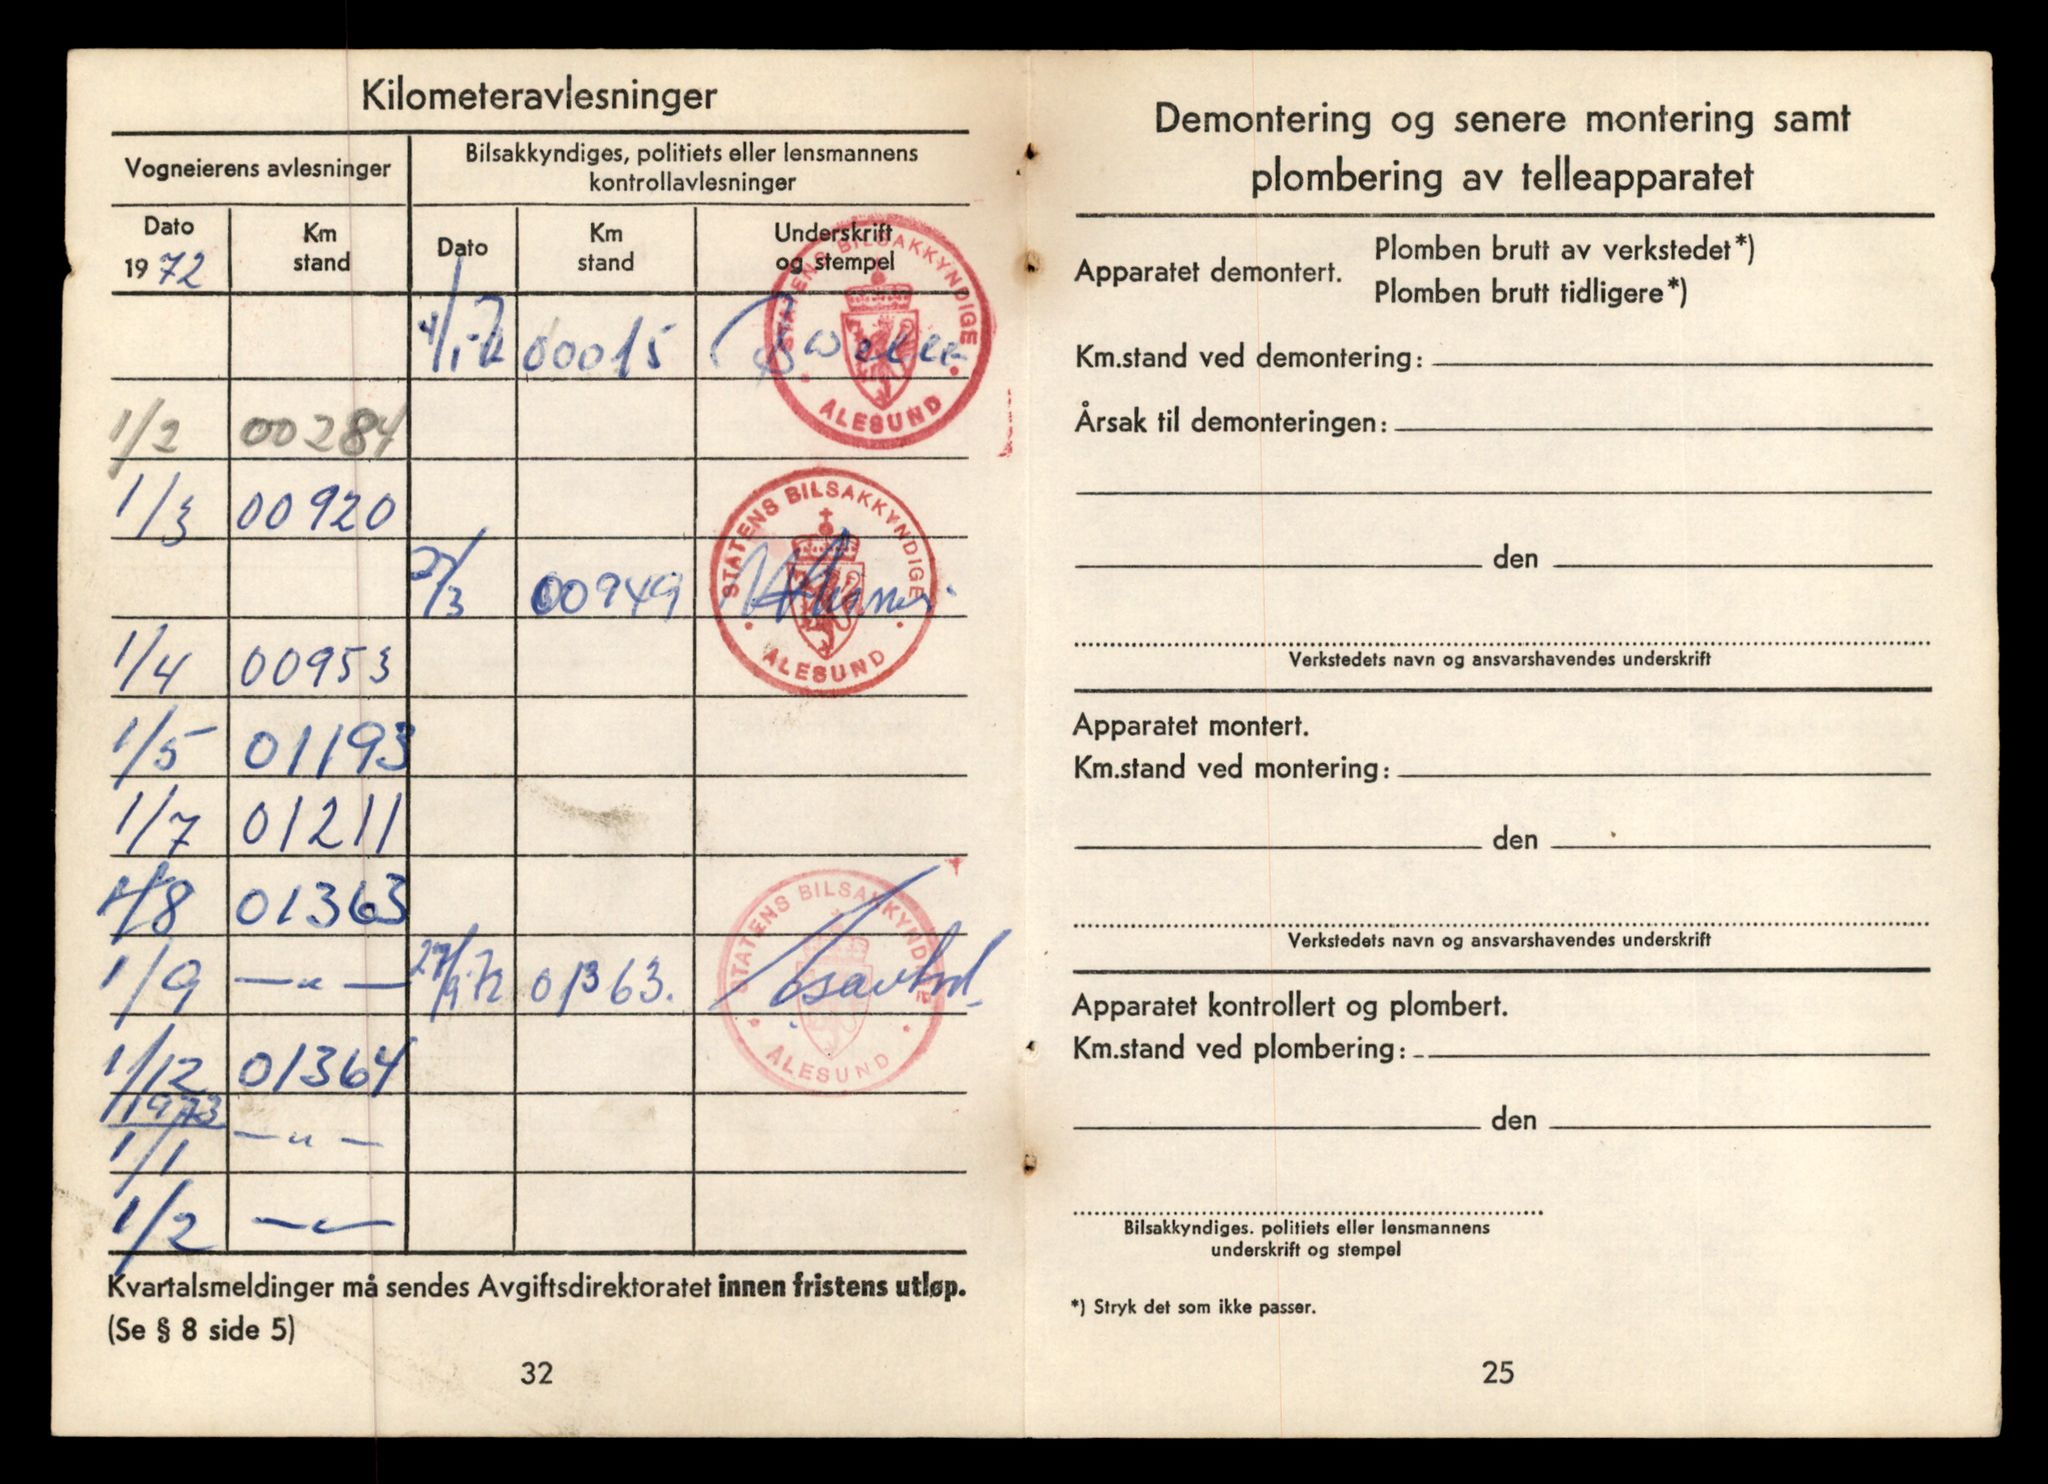 Kilometeravlesninger
Vogneierens avlesninger
Bilsakkyndiges, politiets eller lensmannens
kontrollavlesninger
Dato
1972
Km
stand
Dato
Km
stand
Underskrift
og stempel
STATENS BILSAKKYNDIGE
ÅLESUND
4/1-72 00015
1/2 00284
1/3 00920
STATENS BILSAKKYNDIGE
ÅLESUND
27/3 00949
1/4 00953
1/5 01193
1/7 01211
1/8 01363
STATENS BILSAKKYNDIGE
ÅLESUND
1/9 — " — 27/9-72 01363.
1/12 01364
1973
1/1 — " —
1/2 — " —
Kvartalsmeldinger må sendes Avgiftsdirektoratet innen fristens utløp.
(Se § 8 side 5)
32
Demontering og senere montering samt
plombering av telleapparatet
Apparatet demontert.
Plomben brutt av verkstedet*)
Plomben brutt tidligere*)
Km.stand ved demontering:
Årsak til demonteringen:
den
Verkstedets navn og ansvarshavendes underskrift
Apparatet montert.
Km.stand ved montering:
den
Verkstedets navn og ansvarshavendes underskrift
Apparatet kontrollert og plombert.
Km.stand ved plombering:
den
Bilsakkyndiges. politiets eller lensmannens
underskrift og stempel
*) Stryk det som ikke passer.
25